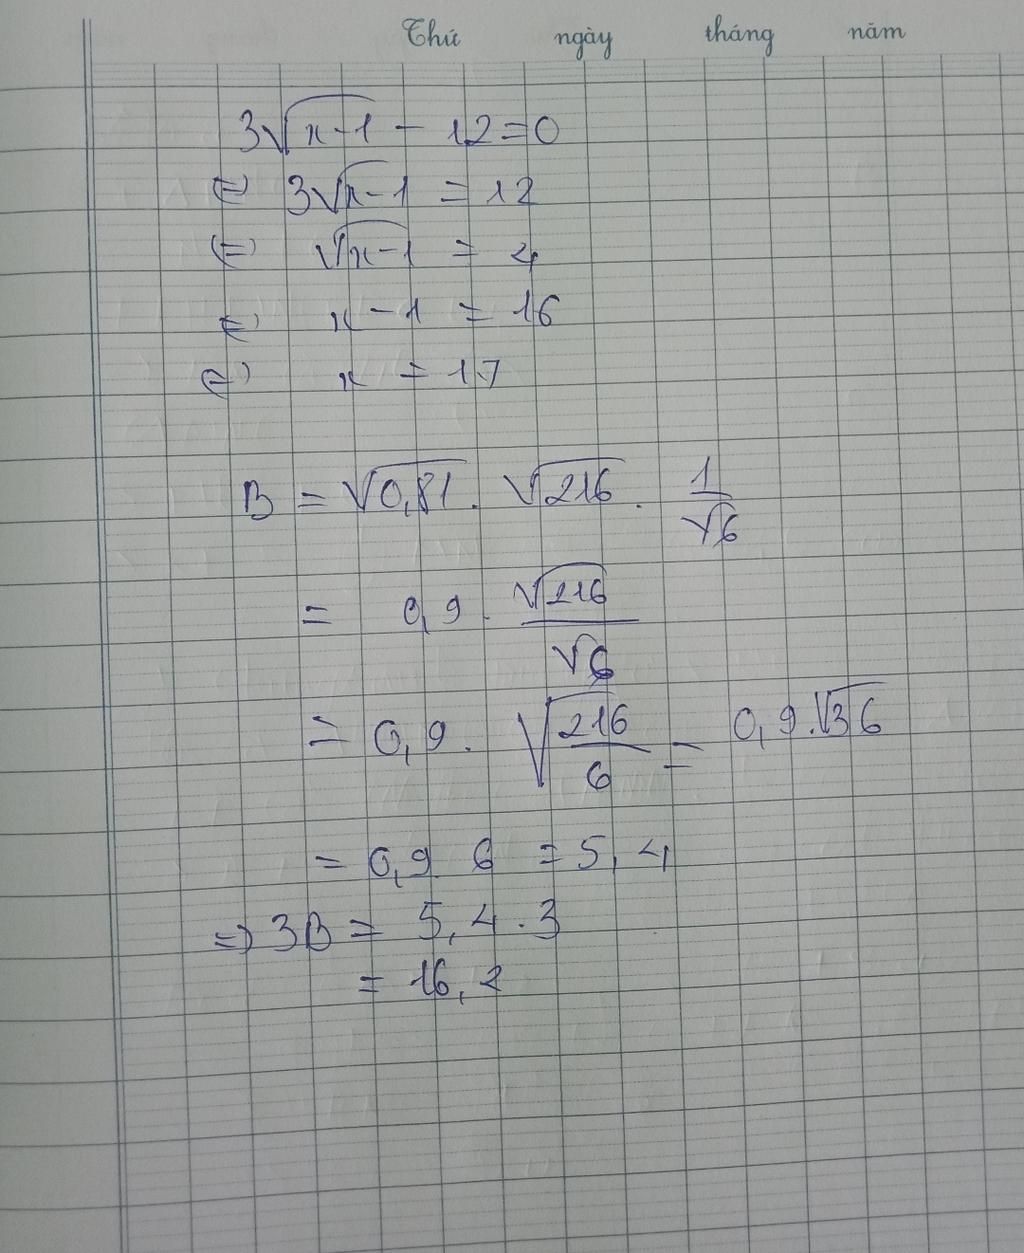 Thứ ngày tháng năm
3√(x-1) - 12 = 0
⇔ 3√(x-1) = 12
⇔ √(x-1) = 4
⇔ x - 1 = 16
⇔ x = 17
B = √0,81 . √216 . 1/√6
= 0,9 . √216/√6
= 0,9 . √(216/6) = 0,9.√36
= 0,9 6 = 5,4
⇒ 3B = 5,4 . 3
= 16,2